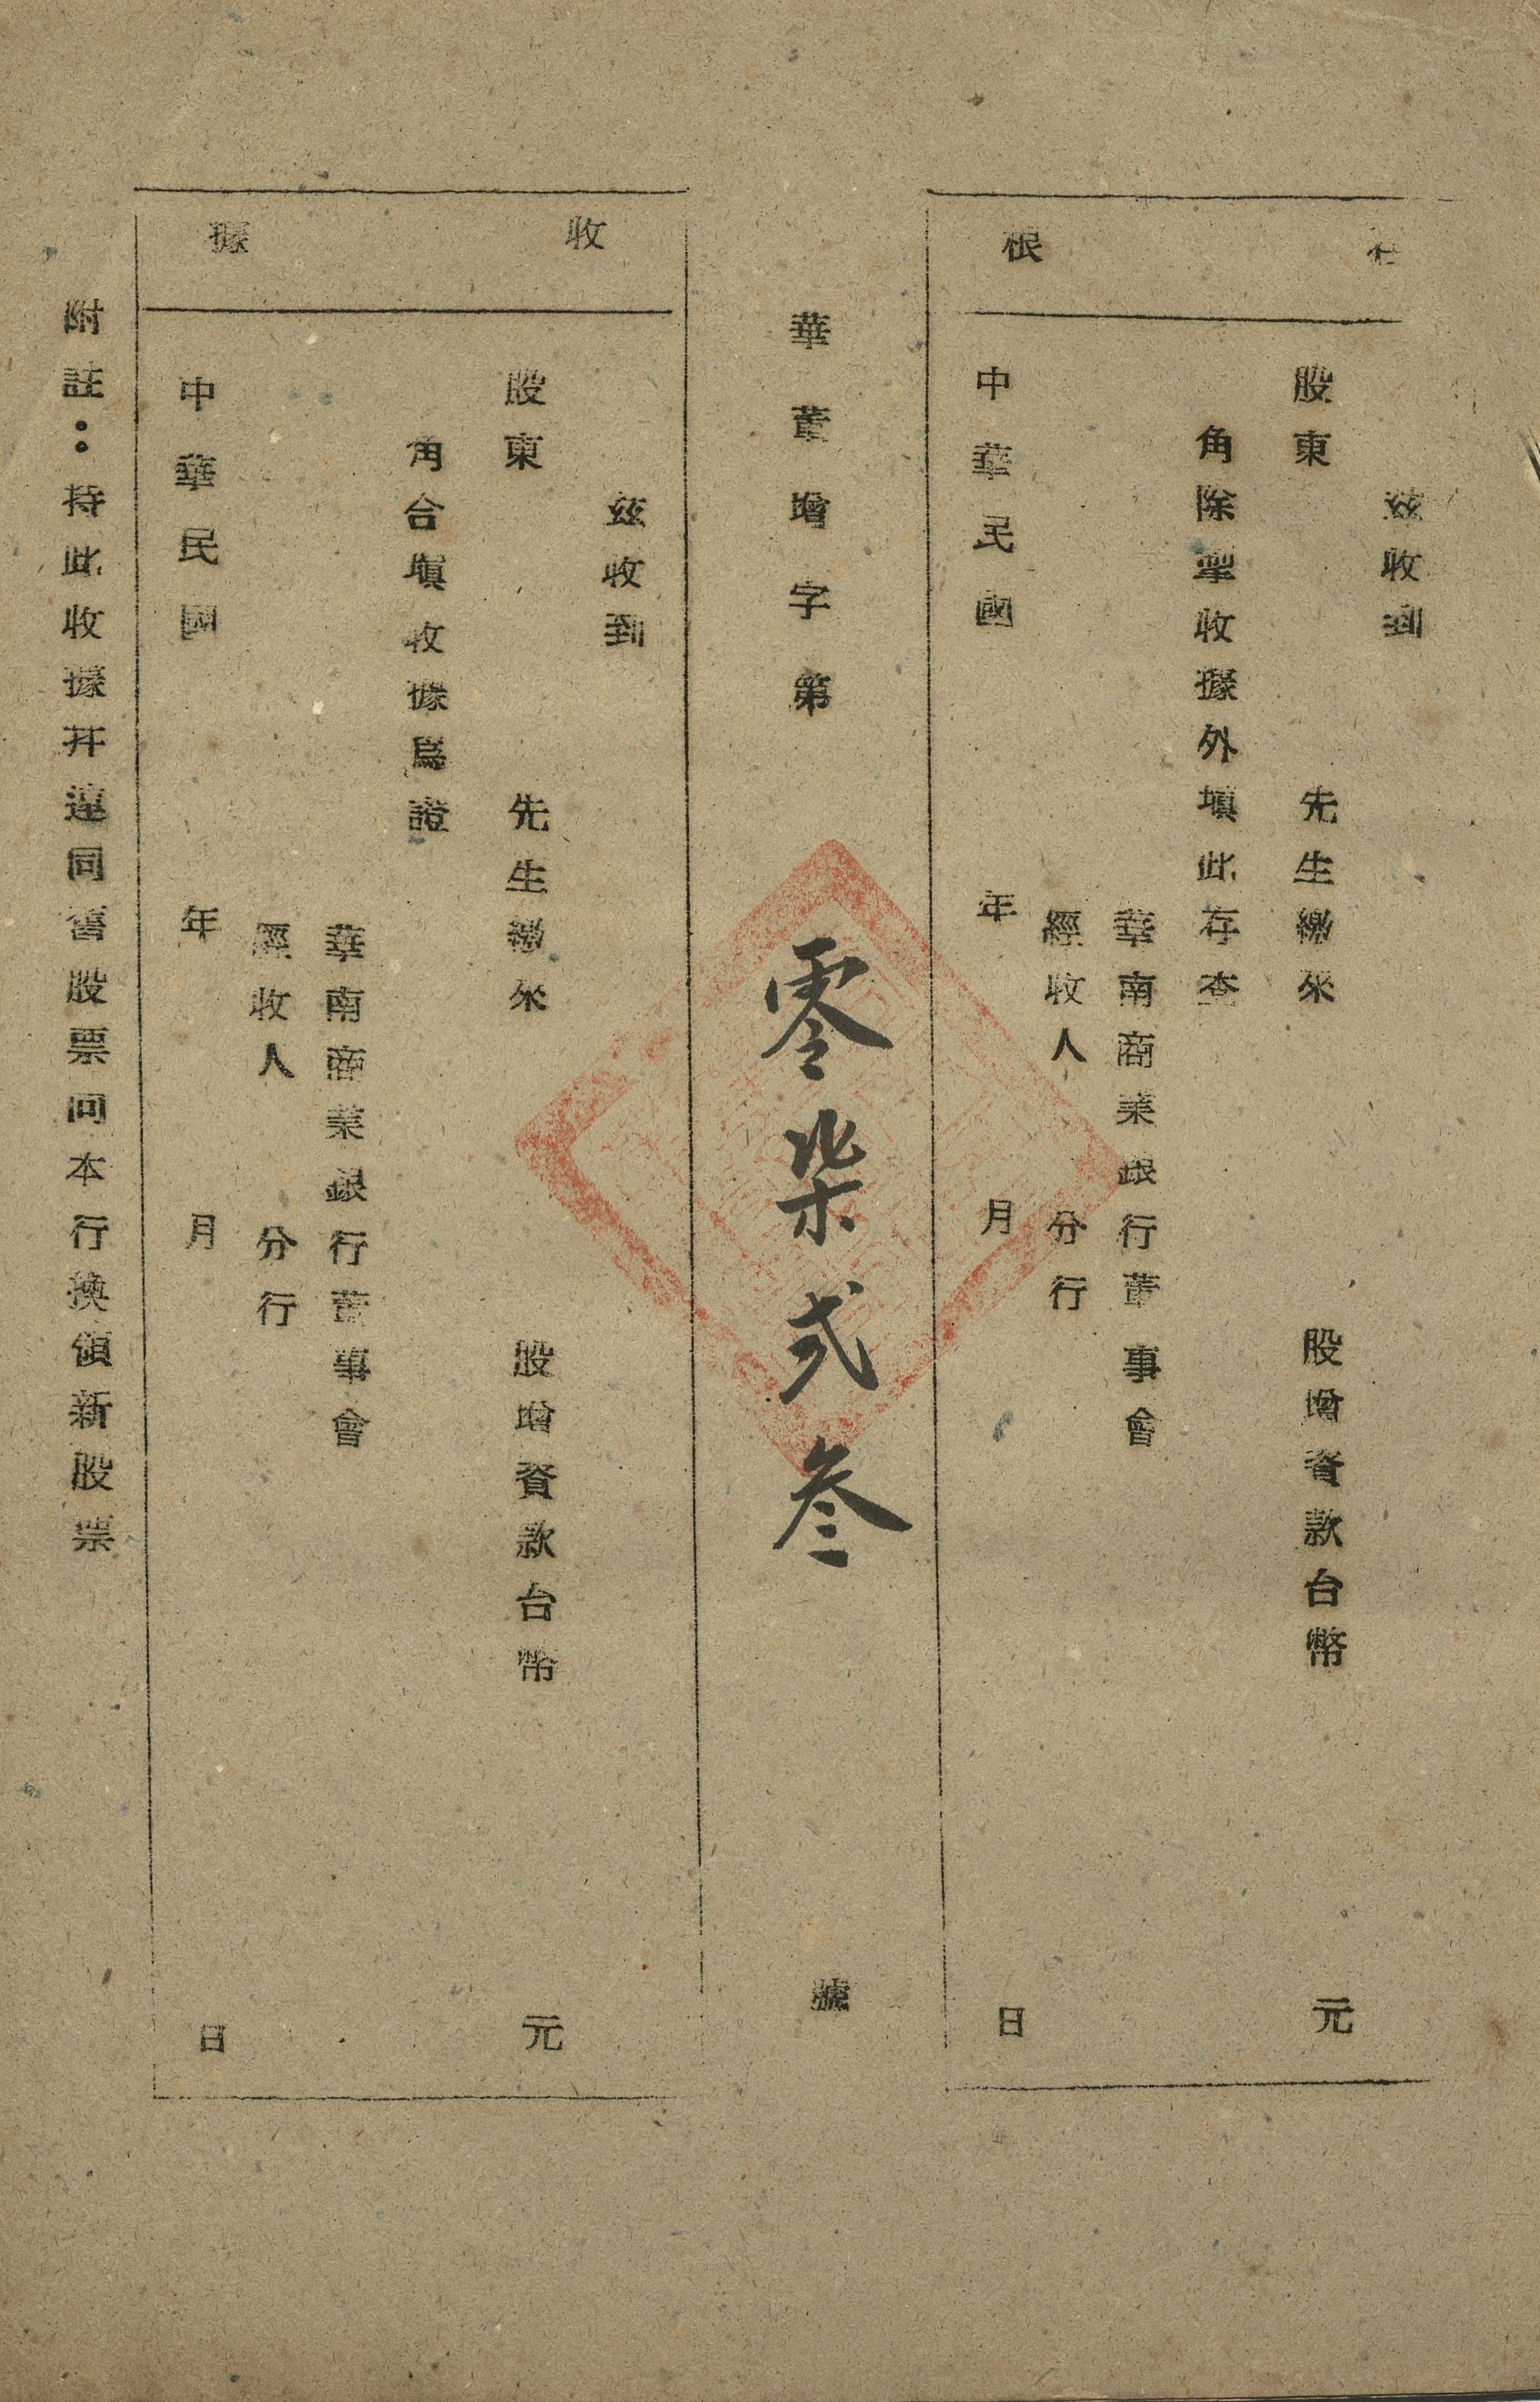 存根
茲收到
股東 先生繳來 股增資款台幣 元
角除掣收據外塡此存查
華南商業銀行董事會
經收人 分行
中華民國 年 月 日
華董增字第 零柒弍叁 號
收據
茲收到
股東 先生繳來 股增資款台幣 元
角合塡收據爲證
華南商業銀行董事會
經收人 分行
中華民國 年 月 日
附註：持此收據幷連同舊股票向本行換領新股票